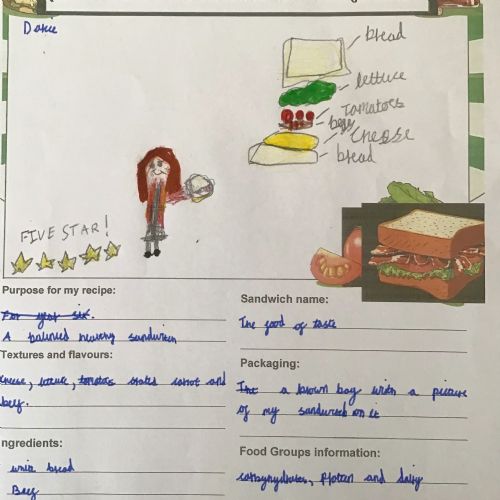 bread
lettuce
Tomatoes
Cheese
bread
FIVE STAR!
Purpose for my recipe:
For year six.
A balinced heathy sandwich
Textures and flavours:
cheese, letuce, tomatos carrot and
beef.
ngredients:
bread
Beef
Sandwich name:
The good of taste
Packaging:
a brown bag with a picture
of my sandwich on it
Food Groups information:
carbohydrates, protein and dairy